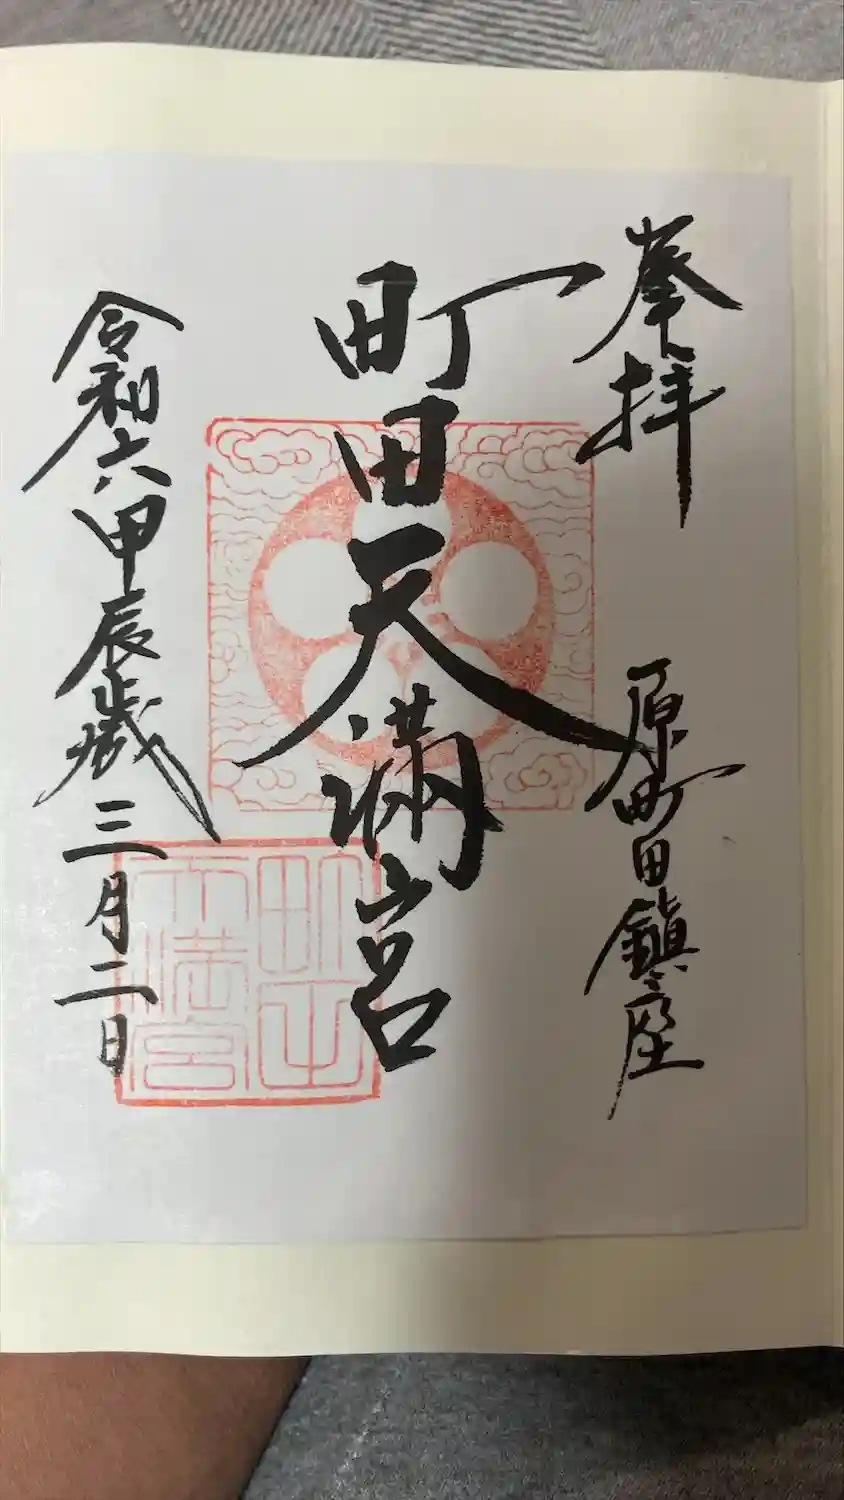 奉拝
原町田鎮座
町田天満宮
令和六甲辰歳三月二日
町田
天満宮